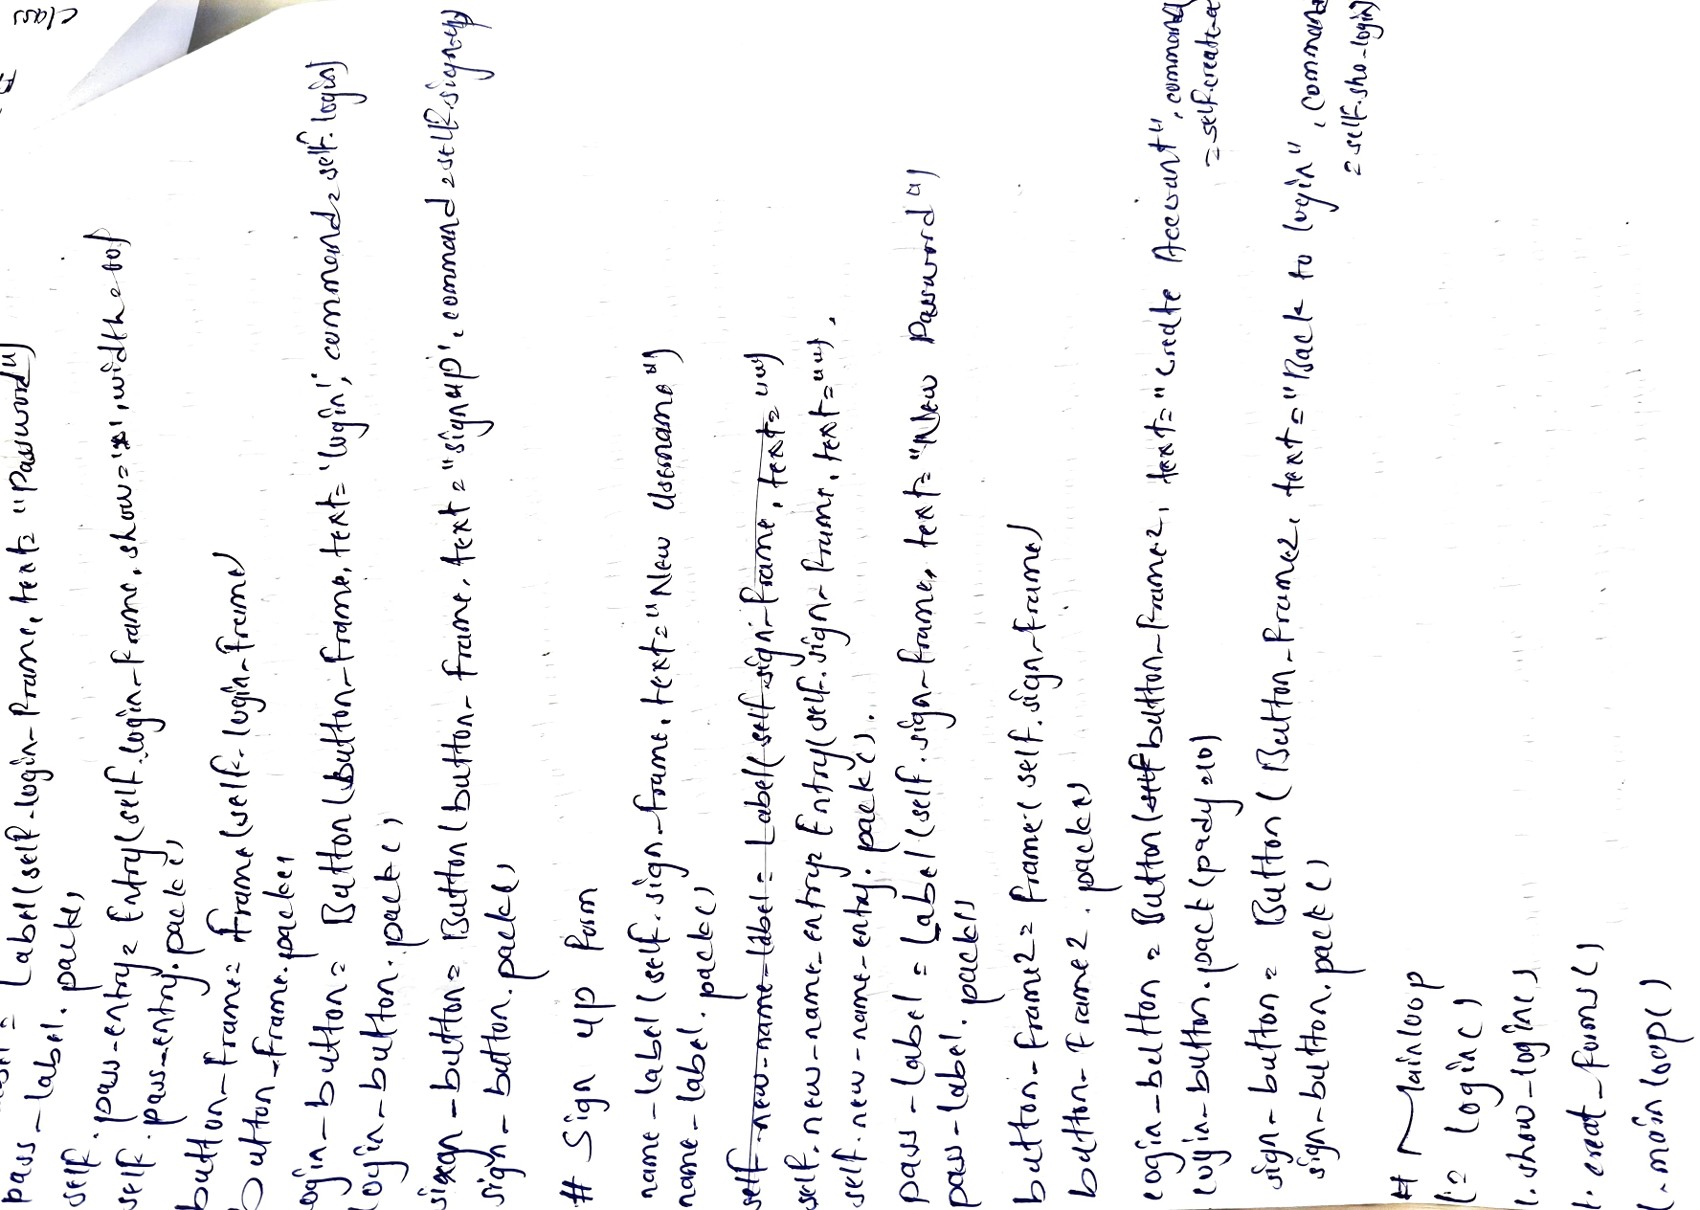 class
pass_label = Label(self.login_frame, text= "Password")
pass_label.pack()
self.pass_entry= Entry(self.login_frame, show='*', width=20)
self.pass_entry.pack()
button_frame= frame(self.login_frame)
button_frame.pack()
login_button = Button(button_frame, text= 'login', command=self.login)
login_button.pack()
sign_button= Button(button_frame, text="sign up", command=self.signup)
sign_button.pack()
# Sign up form
name_label(self.sign_frame, text="New Username")
name_label.pack()
self.new_name_label= Label(self.sign_frame, text="")
self.new_name_entry= Entry(self.sign_frame, text="").
self.new_name_entry.pack().
pass_label = Label(self.sign_frame, text="New Password")
pass_label.pack()
button_frame2= frame(self.sign_frame)
button_frame2.pack()
login_button = Button(button_frame2, text="Create Account", command
=self.create_a
login_button.pack(pady=10)
sign_button = Button(Button_frame2, text="Back to login", comman
=self.sho_login)
sign_button.pack()
# Mainloop
l= login()
l.show_login()
l.creat_forms()
l.mainloop()